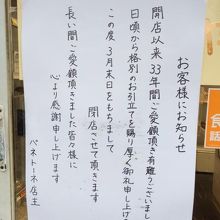 お客様にお知らせ
開店以来33年間ご愛顧頂き有難うございまし
日頃から格別のお引立てを賜り厚く御礼申し上げ
この度3月末日をもちまして
閉店させて頂きます
長い間ご愛顧頂きました皆々様に
心より感謝申し上げます
ベネトーネ店主
食
話